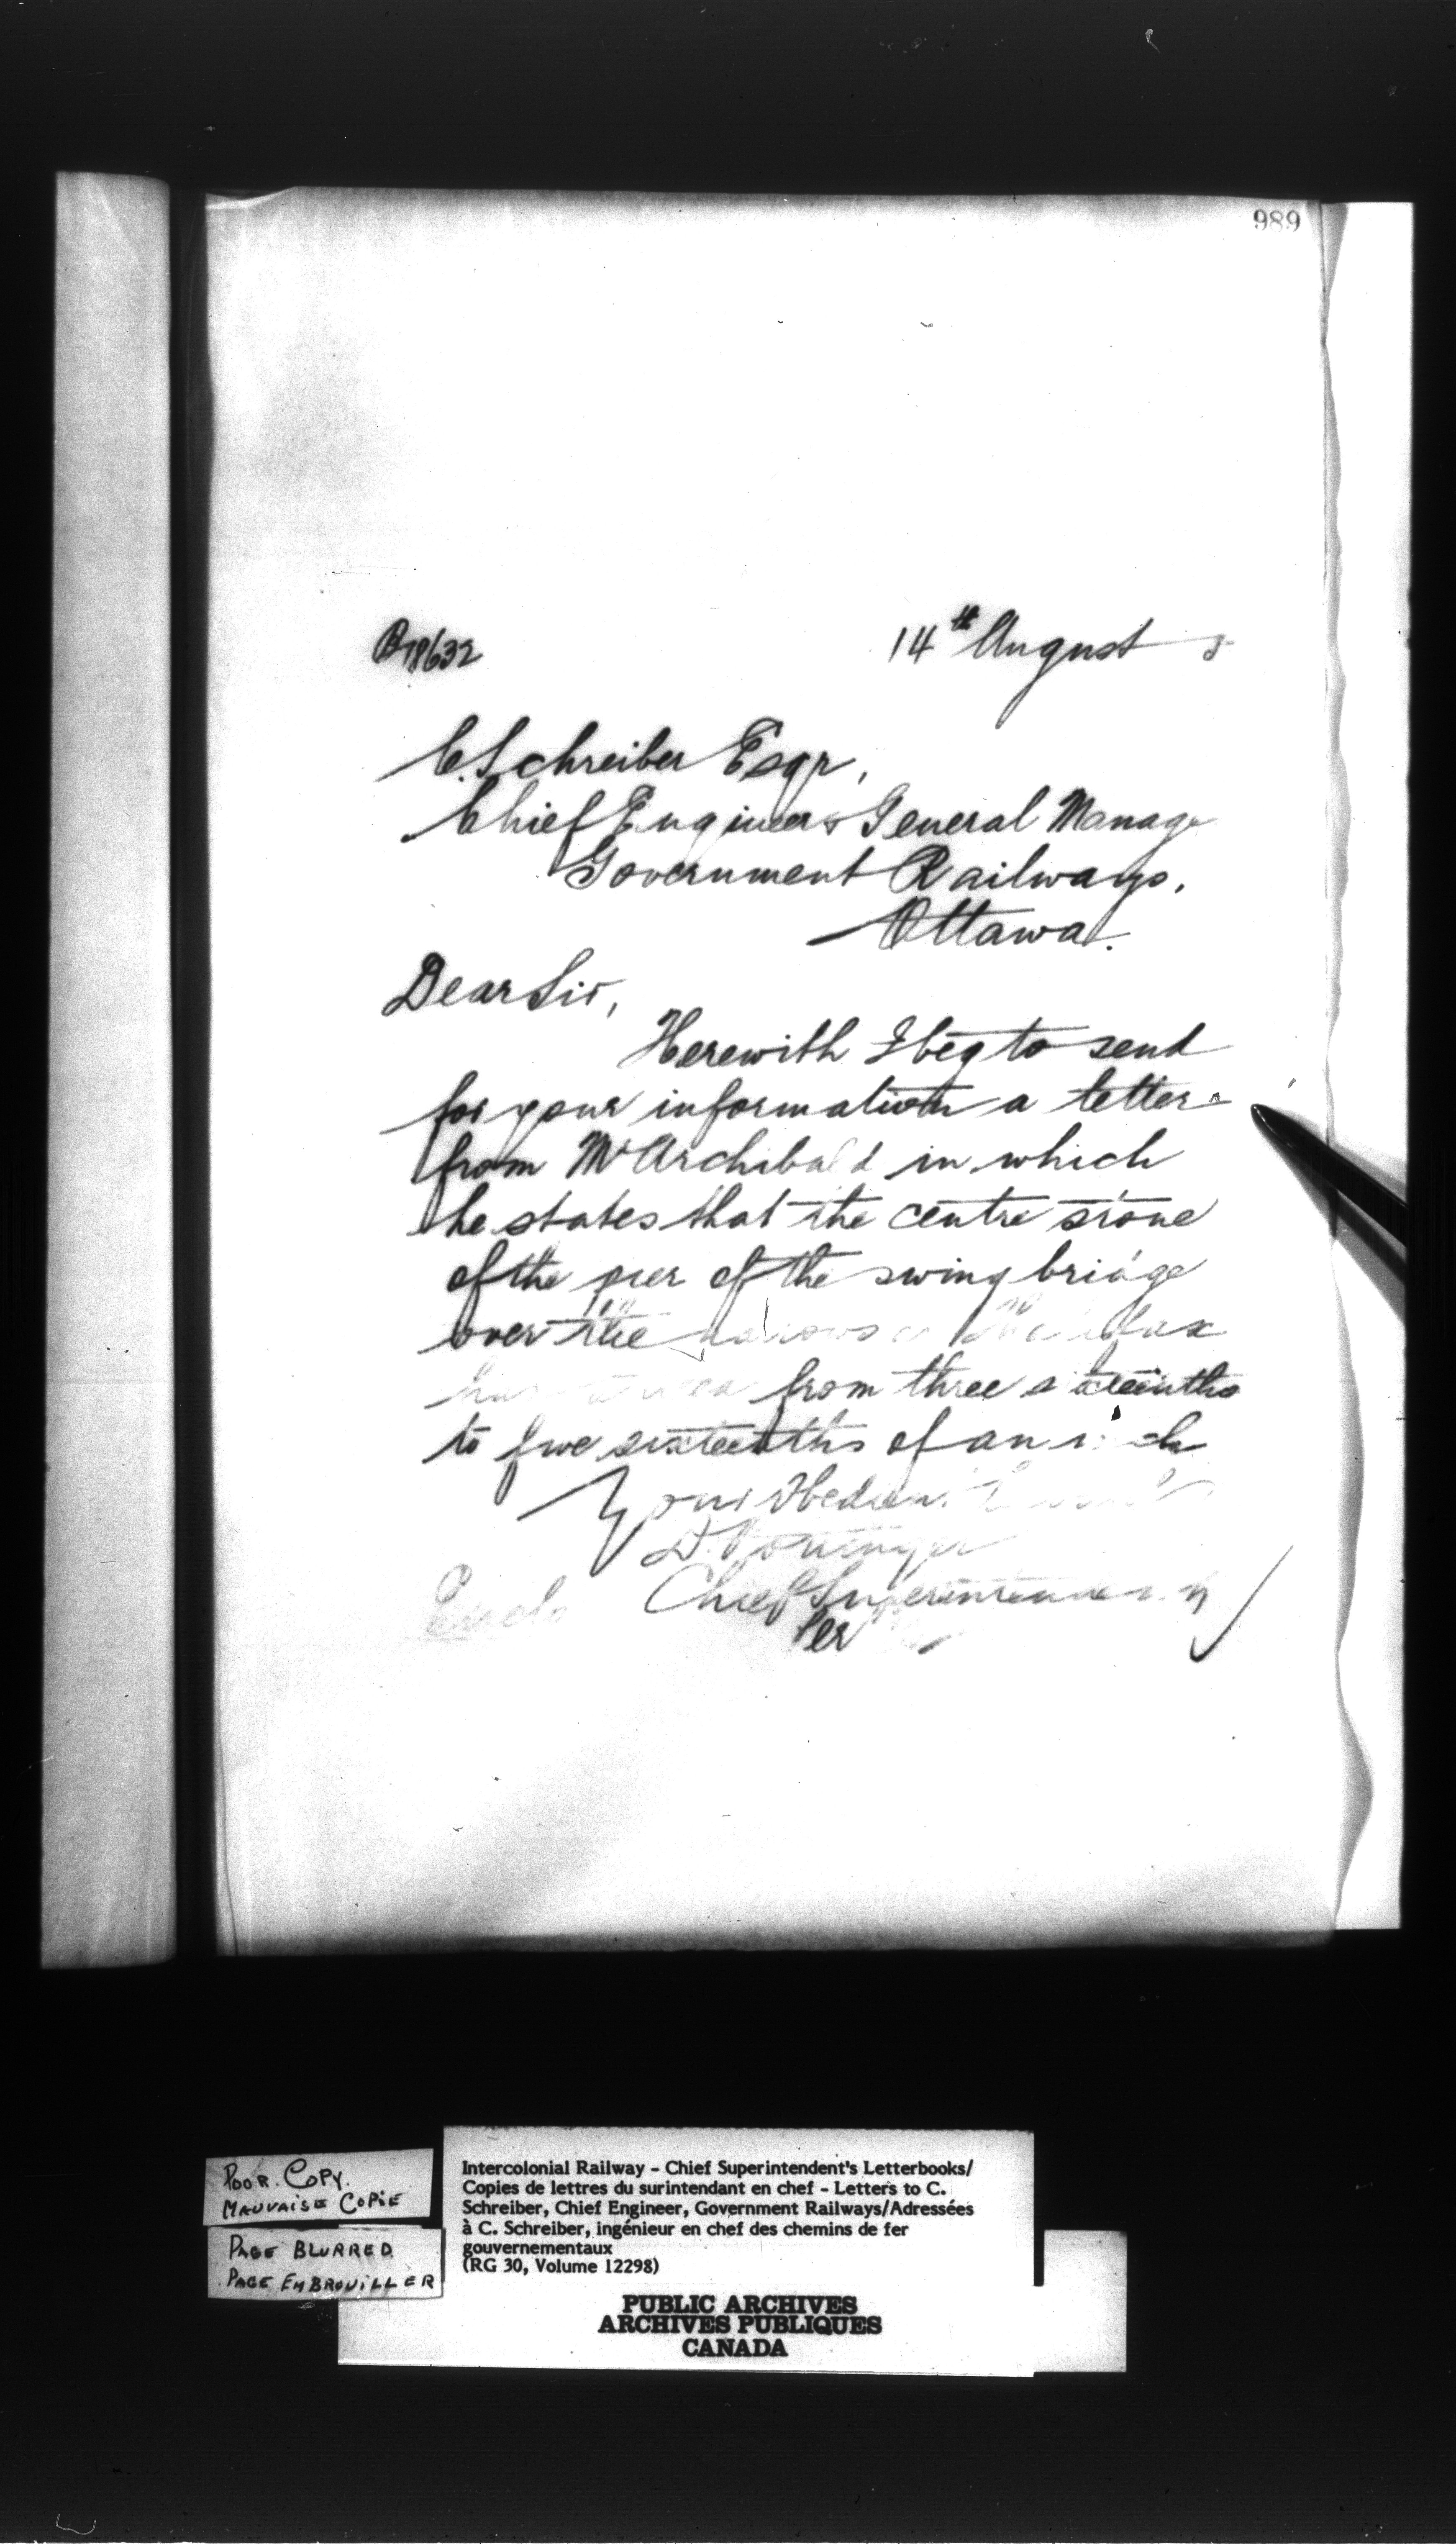 989
B18632
14th August 5
C. Schreiber Esqr,
Chief Engineer & General Manage
Government Railways,
Ottawa.
Dear Sir,
Herewith I beg to send
for your information a letter
from Mr Archibald in which
he states that the centre stone
of the pier of the swing bridge
over the narrows Halifax
from three sixteenths
to five sixteenths of an inch
Your Obedient Servant
D. Pottinger
Chief Superintendent
Per
POOR COPY.
MAUVAISE COPIE
PAGE BLURRED
PAGE EMBROUILLER
Intercolonial Railway - Chief Superintendent's Letterbooks/
Copies de lettres du surintendant en chef - Letters to C.
Schreiber, Chief Engineer, Government Railways/Adressées
à C. Schreiber, ingénieur en chef des chemins de fer
gouvernementaux
(RG 30, Volume 12298)
PUBLIC ARCHIVES
ARCHIVES PUBLIQUES
CANADA